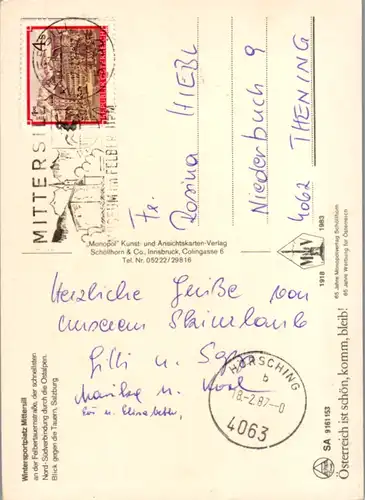 Wintersportplatz Mittersill
an der Felbertauernstraße, der schnellsten
Nord-Südverbindung durch die Ostalpen.
Blick gegen die Tauern, Salzburg
Herzliche Grüße von
unserem Skiurlaub
Lilli u.
Marika u.
u. Elisabeth
"Monopol" Kunst- und Ansichtskarten-Verlag
Schöllhorn & Co., Innsbruck, Colingasse 6
Tel. Nr. 05222/29816
MITTERSILL
4 S
Fr.
Rosina HIEBL
Niederbuch 9
4062 THENING
HÖRSCHING
b
18.-2.87-0
4063
1918
1983
65 Jahre Monopolverlag Schöllhorn
65 Jahre Werbung für Österreich
SA 9161153
Österreich ist schön, komm, bleib!